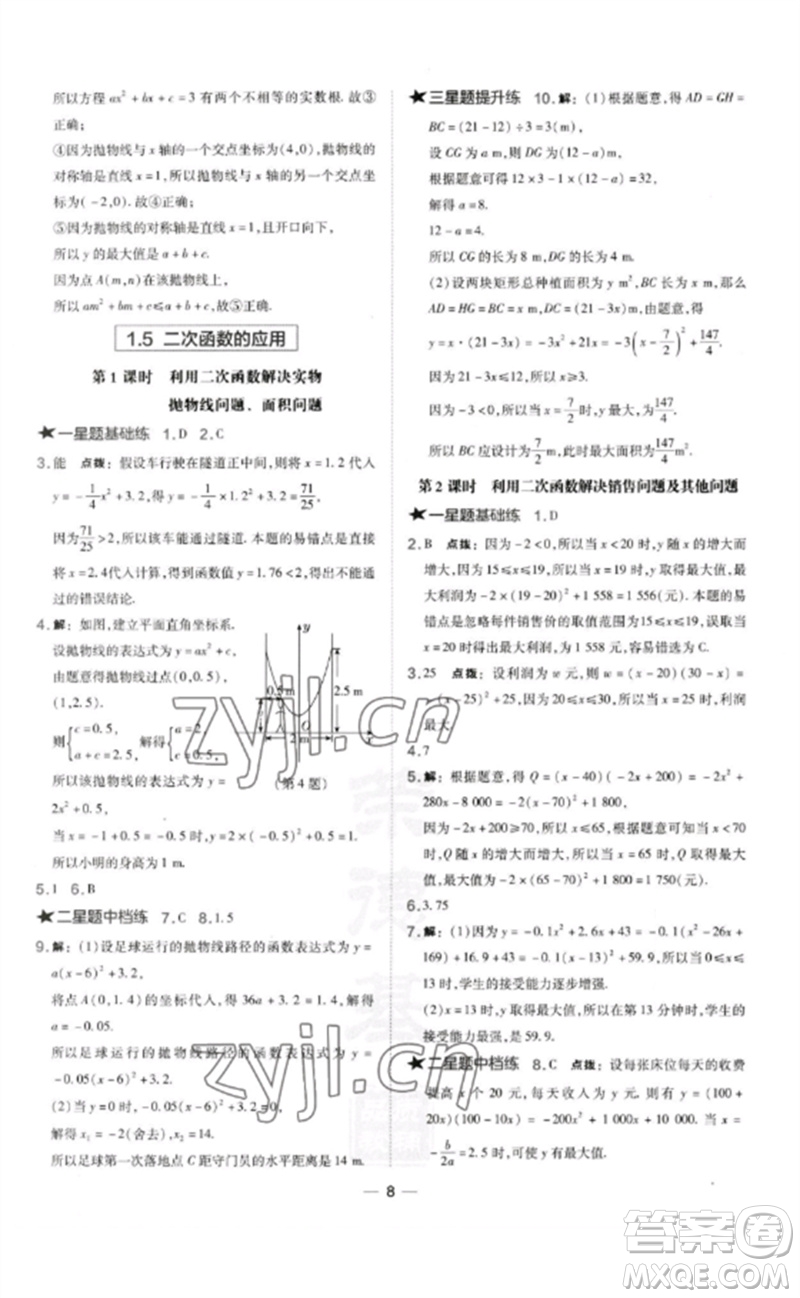 所以方程 ax² + bx + c = 3 有两个不相等的实数根. 故③
正确;
④因为抛物线与 x 轴的一个交点坐标为(4,0), 抛物线
的对称轴是直线 x = 1, 所以抛物线与 x 轴的另一个交
点是( -2,0). 故④正确;
⑤因为抛物线的对称轴是直线 x = 1, 且开口向下,
所以 y 的最大值是 a + b + c.
因为点 A(m,n)在该抛物线上,
所以 am² + bm + c ≤ a + b + c, 故⑤正确.
1.5 二次函数的应用
第 1 课时 利用二次函数解决实物
抛物线问题、面积问题
★一星题基础练 1. D 2. C
3. 能 点拨: 假设车行驶在隧道正中间, 则将 x = 1. 2 代入
y = -1/4x² + 3. 2, 得 y = -1/4 × 1. 2² + 3. 2 = 71/25.
因为71/25 > 2, 所以该车能通过隧道. 本题的易错点是直接
将 x = 2. 4代入计算, 得到函数值 y = 1. 76 < 2, 得到不能通过
的错误结论.
4. 解: 如图, 建立平面直角坐标系.
设抛物线的表达式为 y = ax² + c,
由题意得抛物线经过点(0,0. 5),
(1,2. 5).
则{c = 0. 5, a + c = 2. 5, 解得{a = 2, c = 0. 5.
y
0.5 m
2.5 m
O
2 m
x
(第 4 题)
所以该抛物线的表达式为 y =
2x² + 0. 5,
当 x = -1 + 0. 5 = -0. 5时, y = 2 × ( -0. 5)² + 0. 5 = 1.
所以小明的身高为 1 m.
5. 1 6. B
★二星题中档练 7. C 8. 1. 5
9. 解: (1)设足球运行的抛物线路径的函数表达式为 y =
a(x - 6)² + 3. 2,
将点 A(0,1. 4)的坐标代入, 得 36a + 3. 2 = 1. 4, 解得
a = -0. 05.
所以足球运行的抛物线路径的函数表达式为 y =
-0. 05(x - 6)² + 3. 2.
(2)当 y = 0 时, -0. 05(x - 6)² + 3. 2 = 0,
解得 x₁ = -2(舍去), x₂ = 14.
所以足球第一次落地点 C 距守门吴的水平距离是 14 m.
★三星题提升练 10. 解: (1)根据题意, 得 AD = GH =
BC = (21 - 12) ÷ 3 = 3(m),
设 CG 为 a m, 则 DG 为(12 - a) m,
根据题意可得 12 × 3 - 1 × 3a = 12.
解得 a = 8.
12 - a = 4.
所以 CG 的长为 8 m, DG 的长为 4 m.
(2)设两块矩形总种植面积为 y m², BC 长为 x m, 那么
AD = HG = BC = x m, DC = (21 - 3x) m, 由题意得
y = x · (21 - 3x) = -3x² + 21x = -3(x - 7/2)² + 147/4
因为 21 - 3x ≤ 12, 所以 x ≥ 3.
因为 -3 < 0, 所以当 x = 7/2时, y 有最大值, 最大为147/4.
所以 BC 应设计为7/2 m, 此时最大面积为147/4 m².
第 2 课时 利用二次函数解决销售问题及其他问题
★一星题基础练 1. D
2. B 点拨: 因为 -2 < 0, 所以当 x < 20 时, y 随 x 的增大而
增大. 因为 15 ≤ x ≤ 19, 所以当 x = 19 时, y 取得最大值, 最
大利润为 -2 × (19 - 20)² + 1 558 = 1 556(元). 本题的易
错点是忽略每件销售价的取值范围为 15 ≤ x ≤ 19, 误以为当
x = 20 时取得最大利润, 为 1 558 元, 容易错选为 C.
3. 25 点拨: 设利润为 w 元, 则 w = (x - 20)(30 - x)
= -(x - 25)² + 25, 因为 20 ≤ x ≤ 30, 所以当 x = 25 时, 利润
最大.
4. 7
5. 解: 根据题意, 得 Q = (x - 40)( -2x + 200) = -2x² +
280x - 8 000 = -2(x - 70)² + 1 800,
因为 -2x + 200 ≥ 70, 所以 x ≤ 65, 根据题意可知当 x < 70
时, Q 随 x 的增大而增大, 所以当 x = 65 时, Q 取得最大
值, 最大值为 -2 × (65 - 70)² + 1 800 = 1 750(元).
6. 3. 75
7. 解: (1)因为 y = -0. 1x² + 2. 6x + 43 = -0. 1(x² - 26x +
169) + 16. 9 + 43 = -0. 1(x - 13)² + 59. 9, 所以当 0 ≤
x ≤ 13 时, 学生的接受能力逐步增强.
(2)x = 13 时, y 取得最大值, 所以在第 13 分钟时, 学生的
接受能力最强, 是 59. 9.
★二星题中档练 8. C 点拨: 设每张床位每天的收费
提高 x 个 20 元, 每天收入为 y 元, 则有 y = (100 +
20x)(100 - 10x) = -200x² + 1 000x + 10 000. 当 x =
-b/2a = 2. 5 时, 可使 y 有最大值.
— 8 —
zyjl.cn
zyjl.cn
答案卷
MXQE.COM